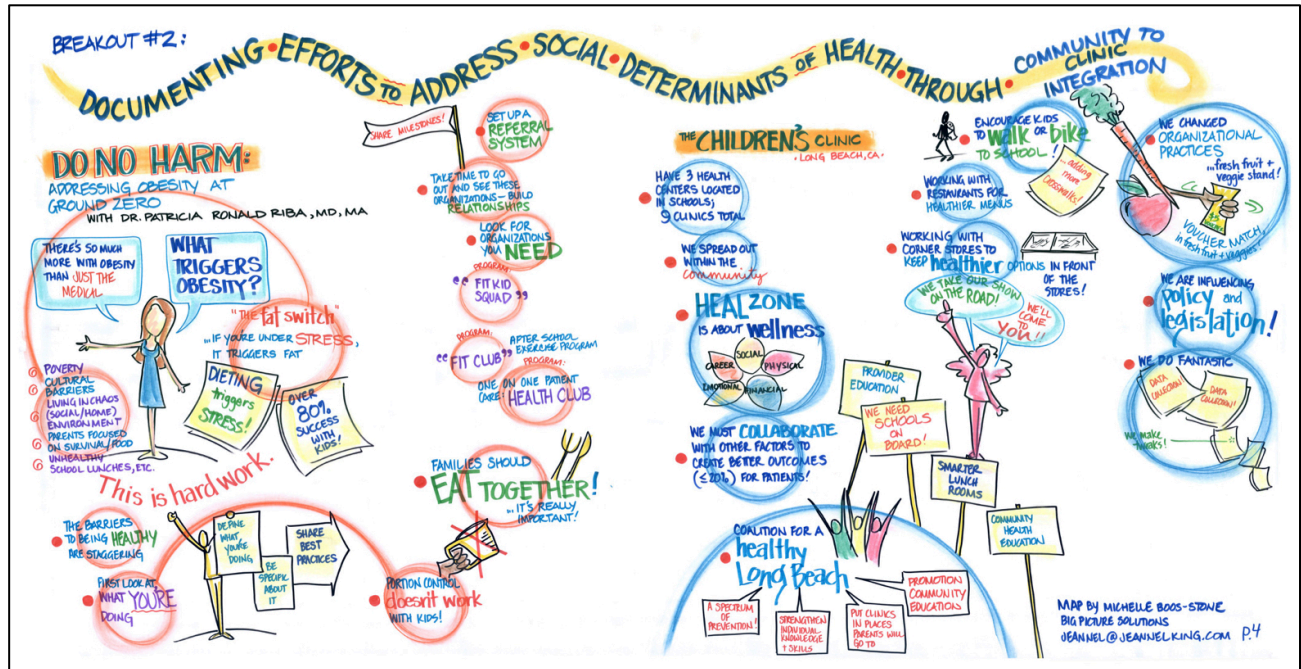 BREAKOUT #2:
DOCUMENTING • EFFORTS TO • ADDRESS • SOCIAL • DETERMINANTS OF HEALTH • THROUGH •
COMMUNITY TO
CLINIC
INTEGRATION
DO NO HARM:
ADDRESSING OBESITY AT
GROUND ZERO
WITH DR. PATRICIA RONALD RIBA, MD, MA
THERE'S SO MUCH
MORE WITH OBESITY
THAN JUST THE
MEDICAL
WHAT
TRIGGERS
OBESITY?
"THE fat switch"
...IF YOU'RE UNDER STRESS,
IT TRIGGERS FAT
POVERTY
CULTURAL
BARRIERS
LIVING IN CHAOS
(SOCIAL/HOME)
ENVIRONMENT
PARENTS FOCUSED
ON SURVIVAL/FOOD
UNHEALTHY
SCHOOL LUNCHES, ETC.
DIETING
triggers
STRESS!
OVER
80%
SUCCESS
WITH
KIDS!
This is hard work.
THE BARRIERS
TO BEING HEALTHY
ARE STAGGERING
FIRST LOOK AT
WHAT YOU'RE
DOING
DEFINE
WHAT
YOU'RE
DOING
BE
SPECIFIC
ABOUT
IT
SHARE
BEST
PRACTICES
SHARE MILESTONES!
SET UP A
REFERRAL
SYSTEM
TAKE TIME TO GO
OUT AND SEE THESE
ORGANIZATIONS - BUILD
RELATIONSHIPS
LOOK FOR
ORGANIZATIONS
YOU NEED
PROGRAM:
"FIT KID
SQUAD"
PROGRAM:
"FIT CLUB"
AFTER SCHOOL
EXERCISE PROGRAM
PROGRAM:
ONE ON ONE PATIENT
CARE: HEALTH CLUB
FAMILIES SHOULD
EAT TOGETHER!
...IT'S REALLY
IMPORTANT!
PORTION CONTROL
doesn't work
WITH KIDS!
THE CHILDREN'S CLINIC
• LONG BEACH, CA •
HAVE 3 HEALTH
CENTERS LOCATED
IN SCHOOLS;
9 CLINICS TOTAL
WE SPREAD OUT
WITHIN THE
community
HEAL ZONE
IS ABOUT wellness
SOCIAL
CAREER
PHYSICAL
EMOTIONAL
FINANCIAL
WE MUST COLLABORATE
WITH OTHER FACTORS TO
CREATE BETTER OUTCOMES
(≤20%) FOR PATIENTS!
COALITION FOR A
healthy
Long Beach
A SPECTRUM
OF
PREVENTION!
STRENGTHEN
INDIVIDUAL
KNOWLEDGE
+ SKILLS
PUT CLINICS
IN PLACES
PARENTS WILL
GO TO
PROMOTION
COMMUNITY
EDUCATION
PROVIDER
EDUCATION
WE NEED
SCHOOLS
ON
BOARD!
SMARTER
LUNCH
ROOMS
COMMUNITY
HEALTH
EDUCATION
ENCOURAGE KIDS
TO walk OR bike
TO SCHOOL!
...adding
more
crosswalks!
WORKING WITH
RESTAURANTS FOR
HEALTHIER MENUS
WORKING WITH
CORNER STORES TO
KEEP healthier OPTIONS IN FRONT
OF THE
STORES!
WE TAKE OUR SHOW
ON THE ROAD!
WE'LL
COME
TO
YOU!!
WE CHANGED
ORGANIZATIONAL
PRACTICES
...fresh fruit +
veggie stand!
VOUCHER MATCH,
in fresh fruit + veggies!
WE ARE INFLUENCING
policy and
legislation!
WE DO FANTASTIC
DATA
COLLECTION!
DATA
COLLECTION!
We make
tweaks!
MAP BY MICHELLE BOOS-STONE
BIG PICTURE SOLUTIONS
JEANNEL@JEANNELKING.COM P.4